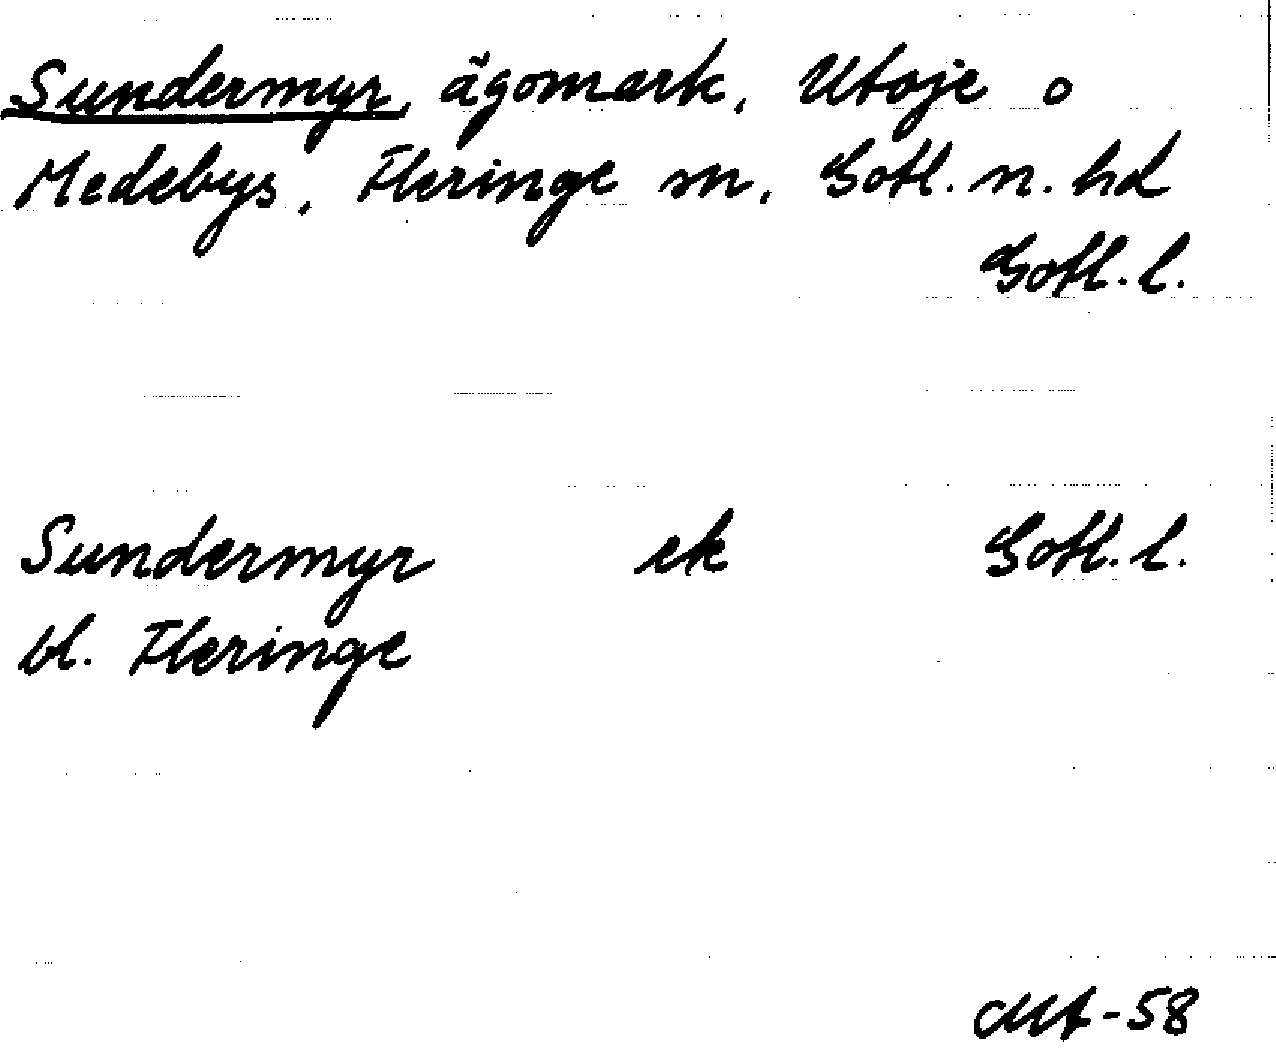 Sundermyr, ägomark, Utoje o
Medebys, Fleringe sn, Gotl. n. hd
Gotl. l.
Sundermyr ek Gotl. l.
bl. Fleringe
-58